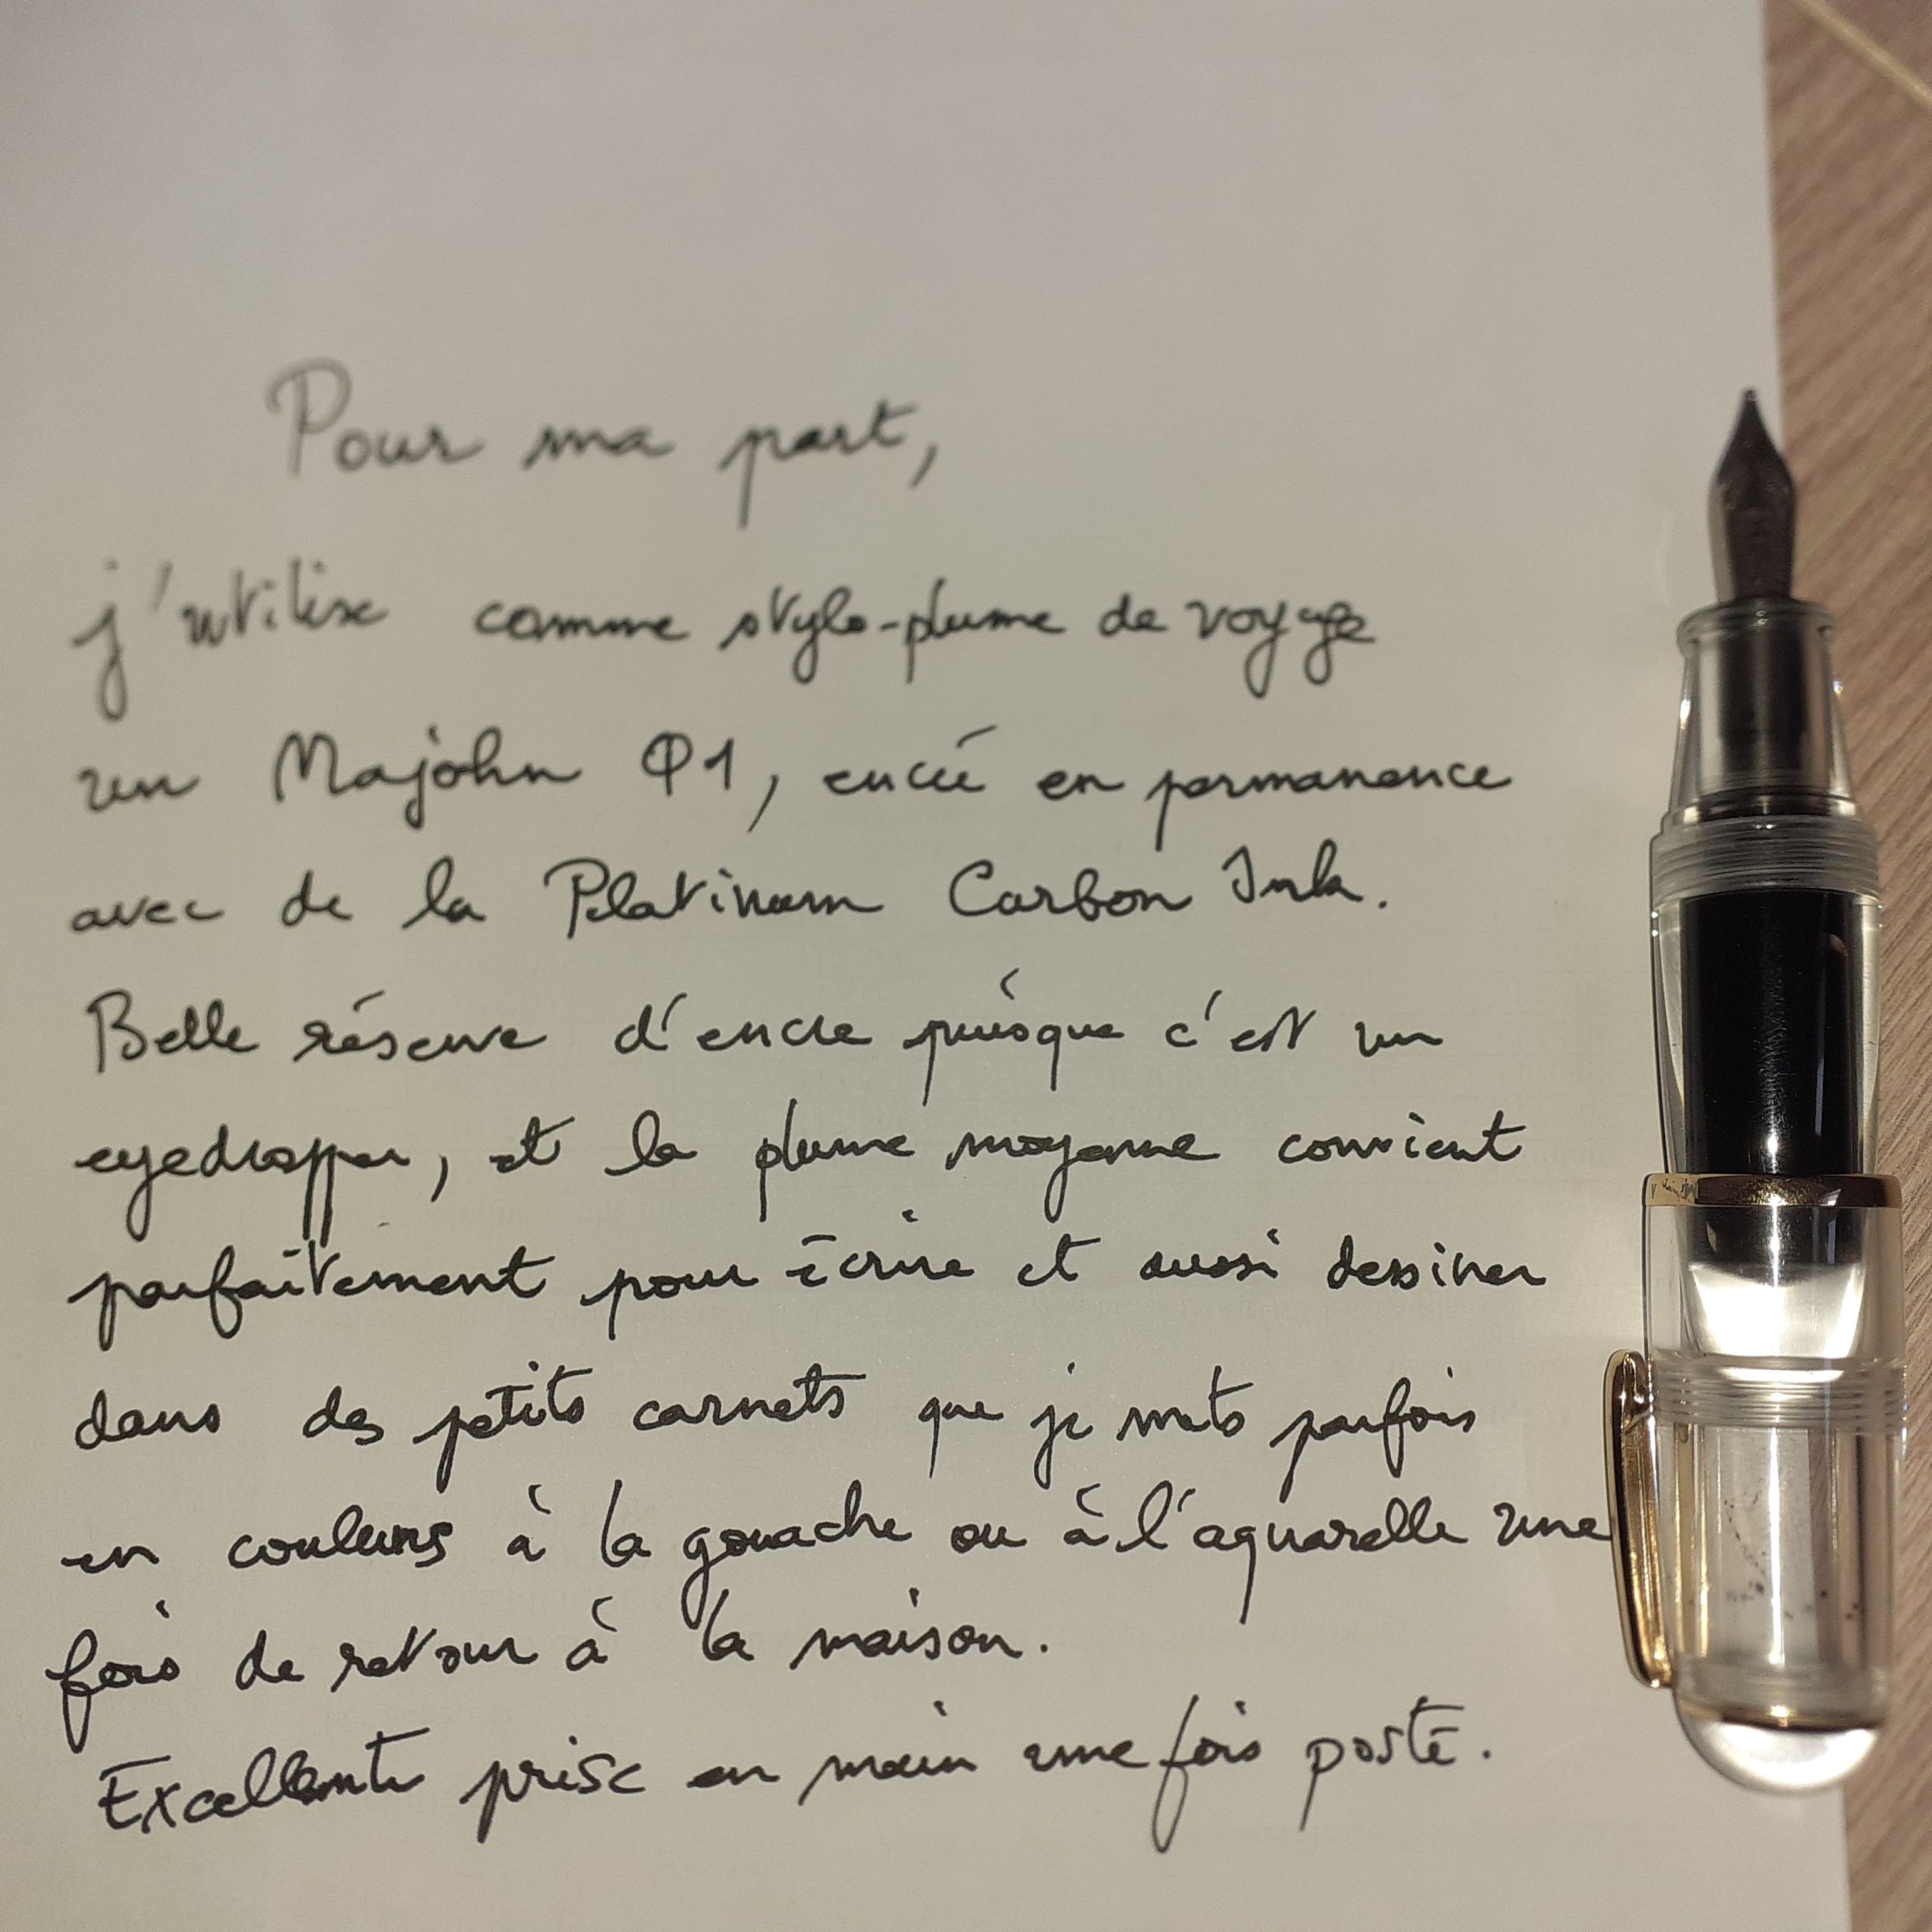 Pour ma part,
j'utilise comme stylo-plume de voyage
un Majohn Q1, encré en permanence
avec de la Platinum Carbon Ink.
Belle réserve d'encre puisque c'est un
eyedropper, et la plume moyenne convient
parfaitement pour écrire et aussi dessiner
dans des petits carnets que je mets parfois
en couleurs à la gouache ou à l'aquarelle une
fois de retour à la maison.
Excellente prise en main une fois posté.